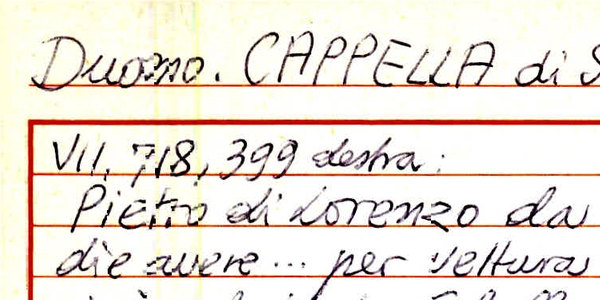 Duomo. CAPPELLA di S
VII, 718, 399 destra:
Pietro di Lorenzo da
die avere... per vettura